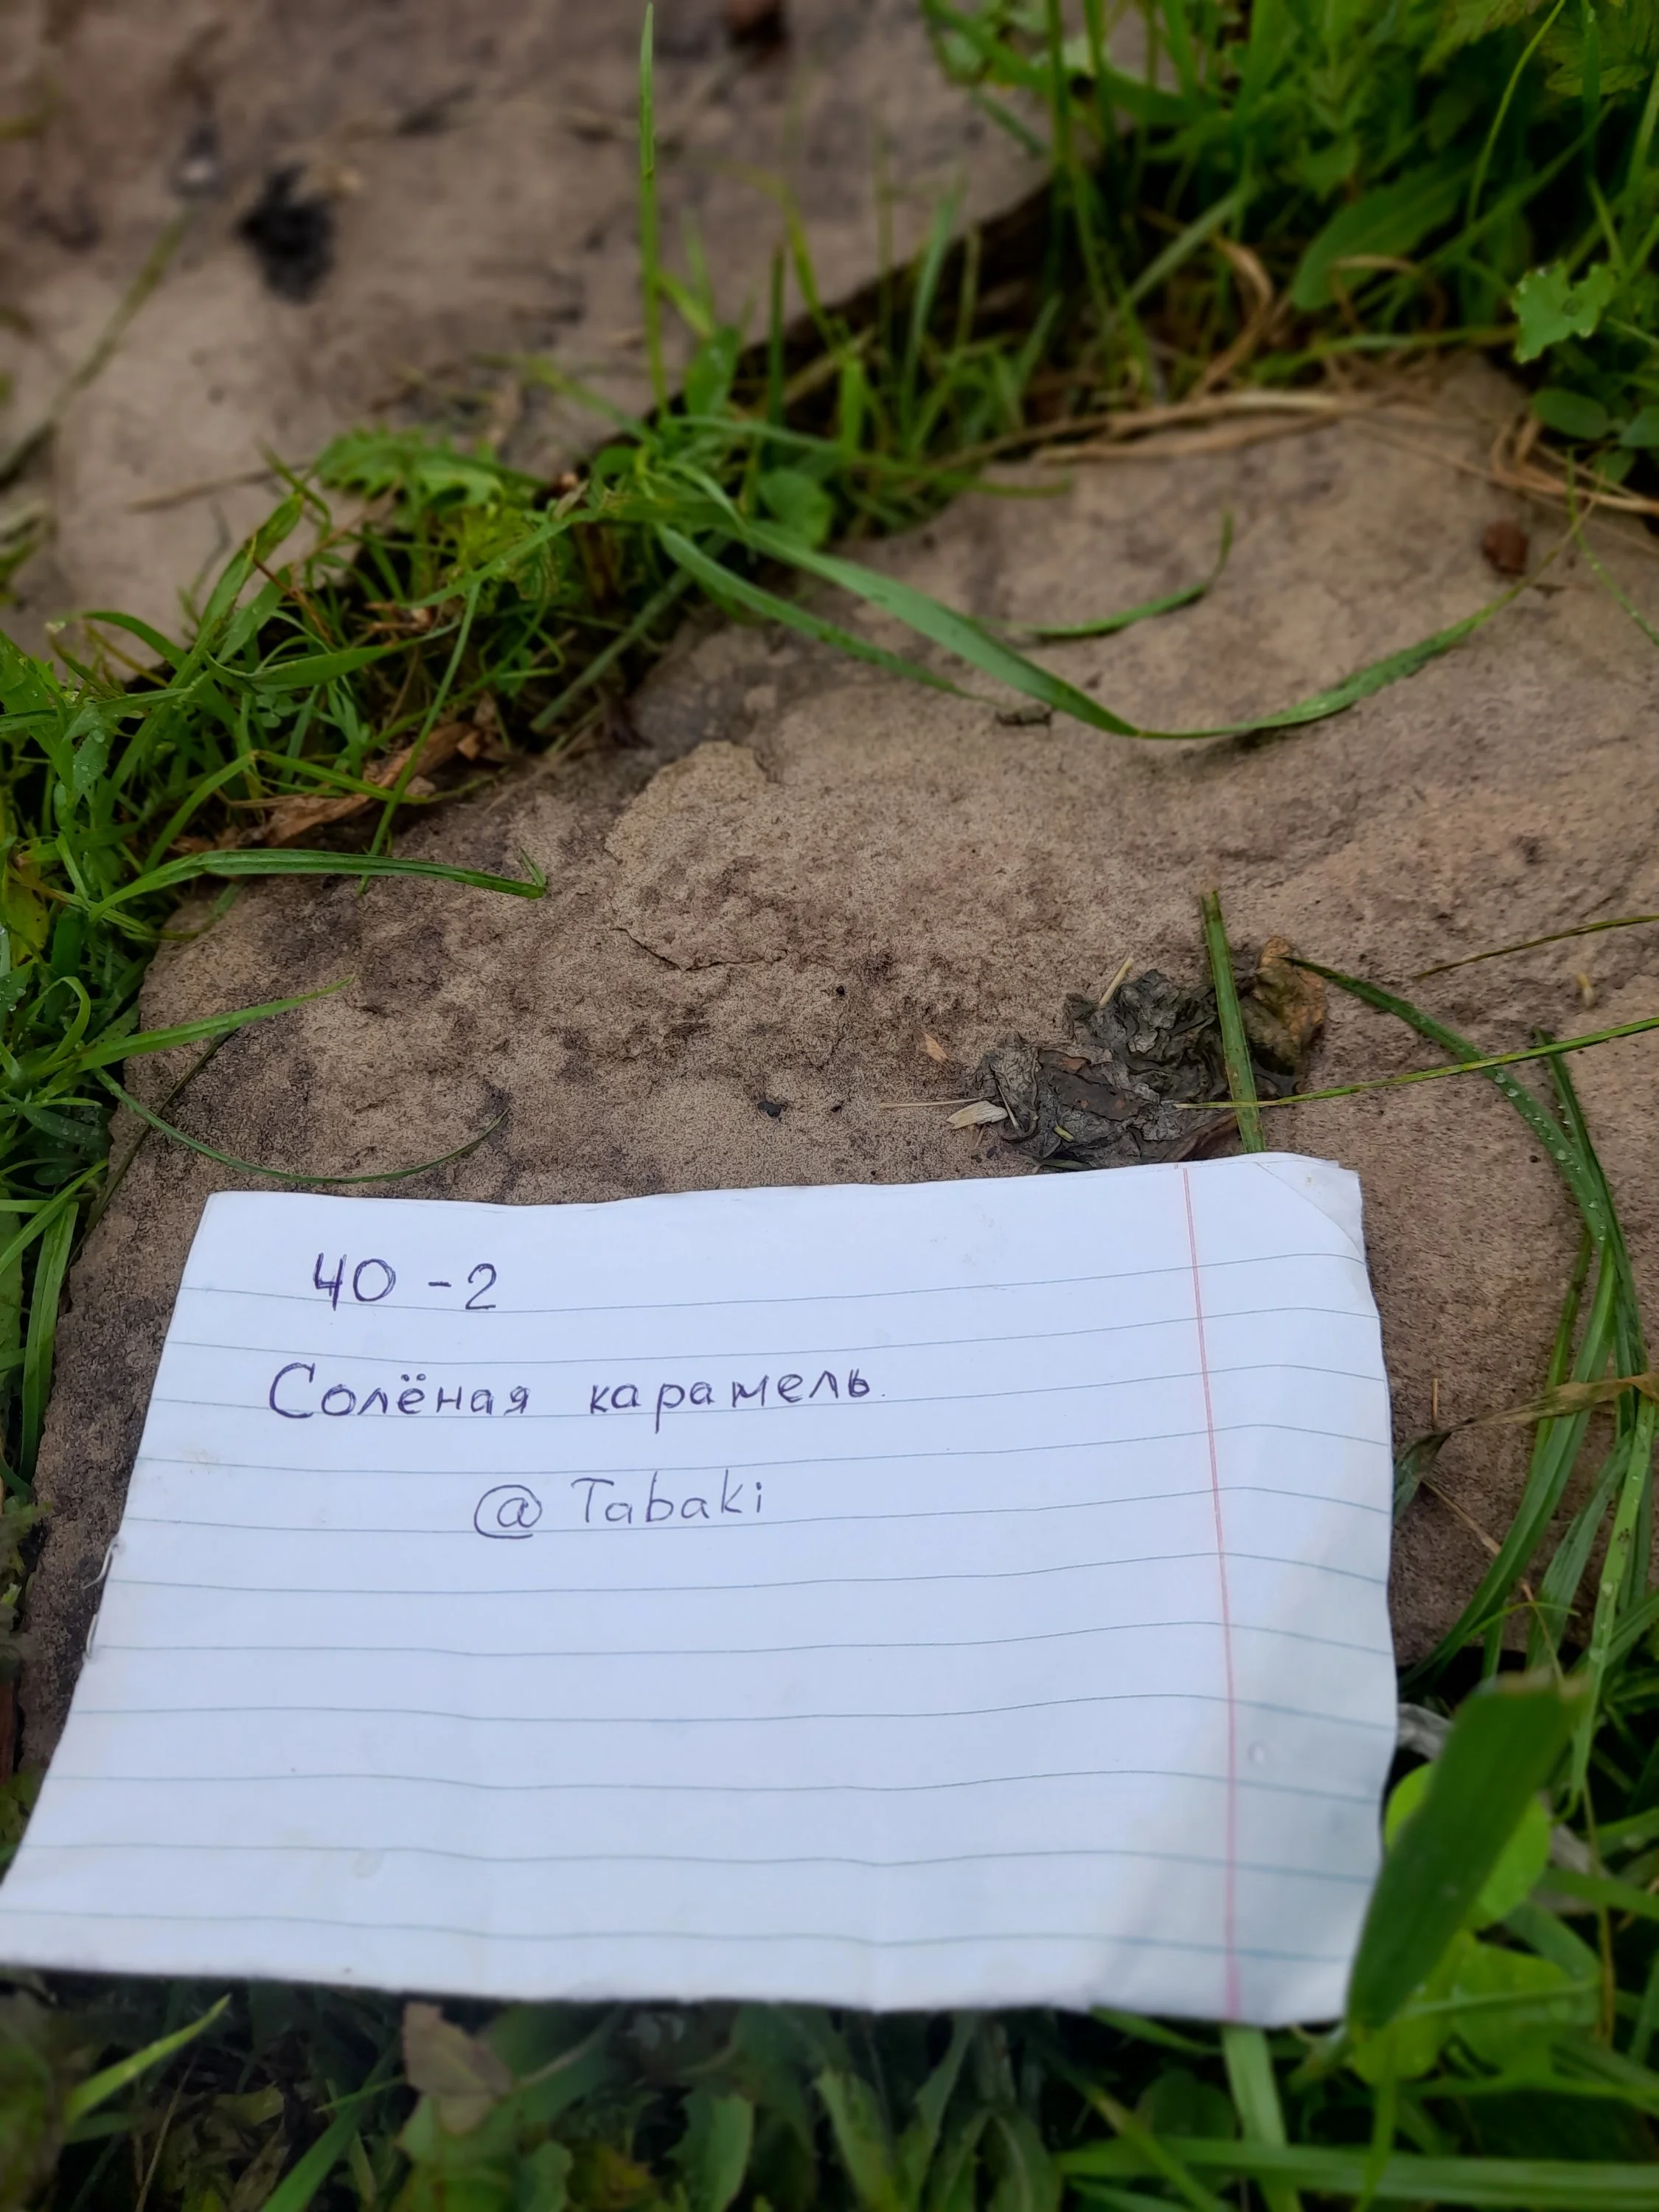 40 - 2
Солёная карамель.
@ Tabaki